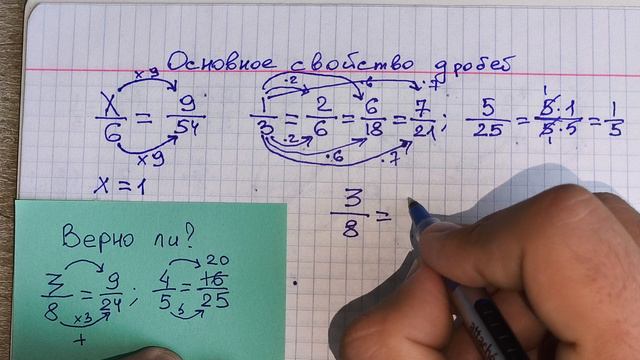 Основное свойство дробей
x/6 = 9/54 ×9 ×9
1/3 = 2/6 = 6/18 = 7/21; ·2 ·6 ·7 ·2 ·6 ·7
5/25 = 5·1/5·5 = 1/5 1 1
x = 1
3/8 =
Верно ли?
3/8 = 9/24; ×3 +
4/5 = 16/25 20 5